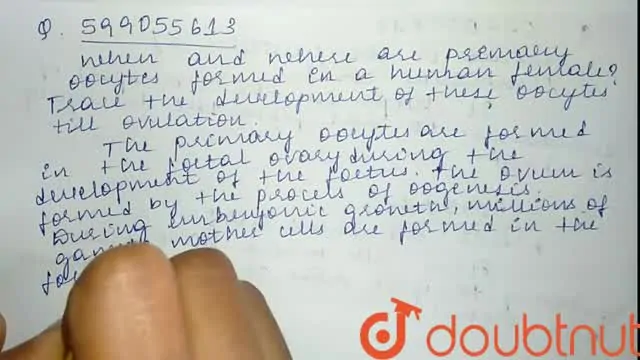 Q. 599055613
When and where are primary
oocytes formed in a human female?
Trace the development of these oocytes
till ovulation.
The primary oocytes are formed
in the foetal ovary during the
development of the foetus. The ovum is
formed by the process of oogenesis.
During embryonic growth, millions of
mother cells are formed in the
doubtnut